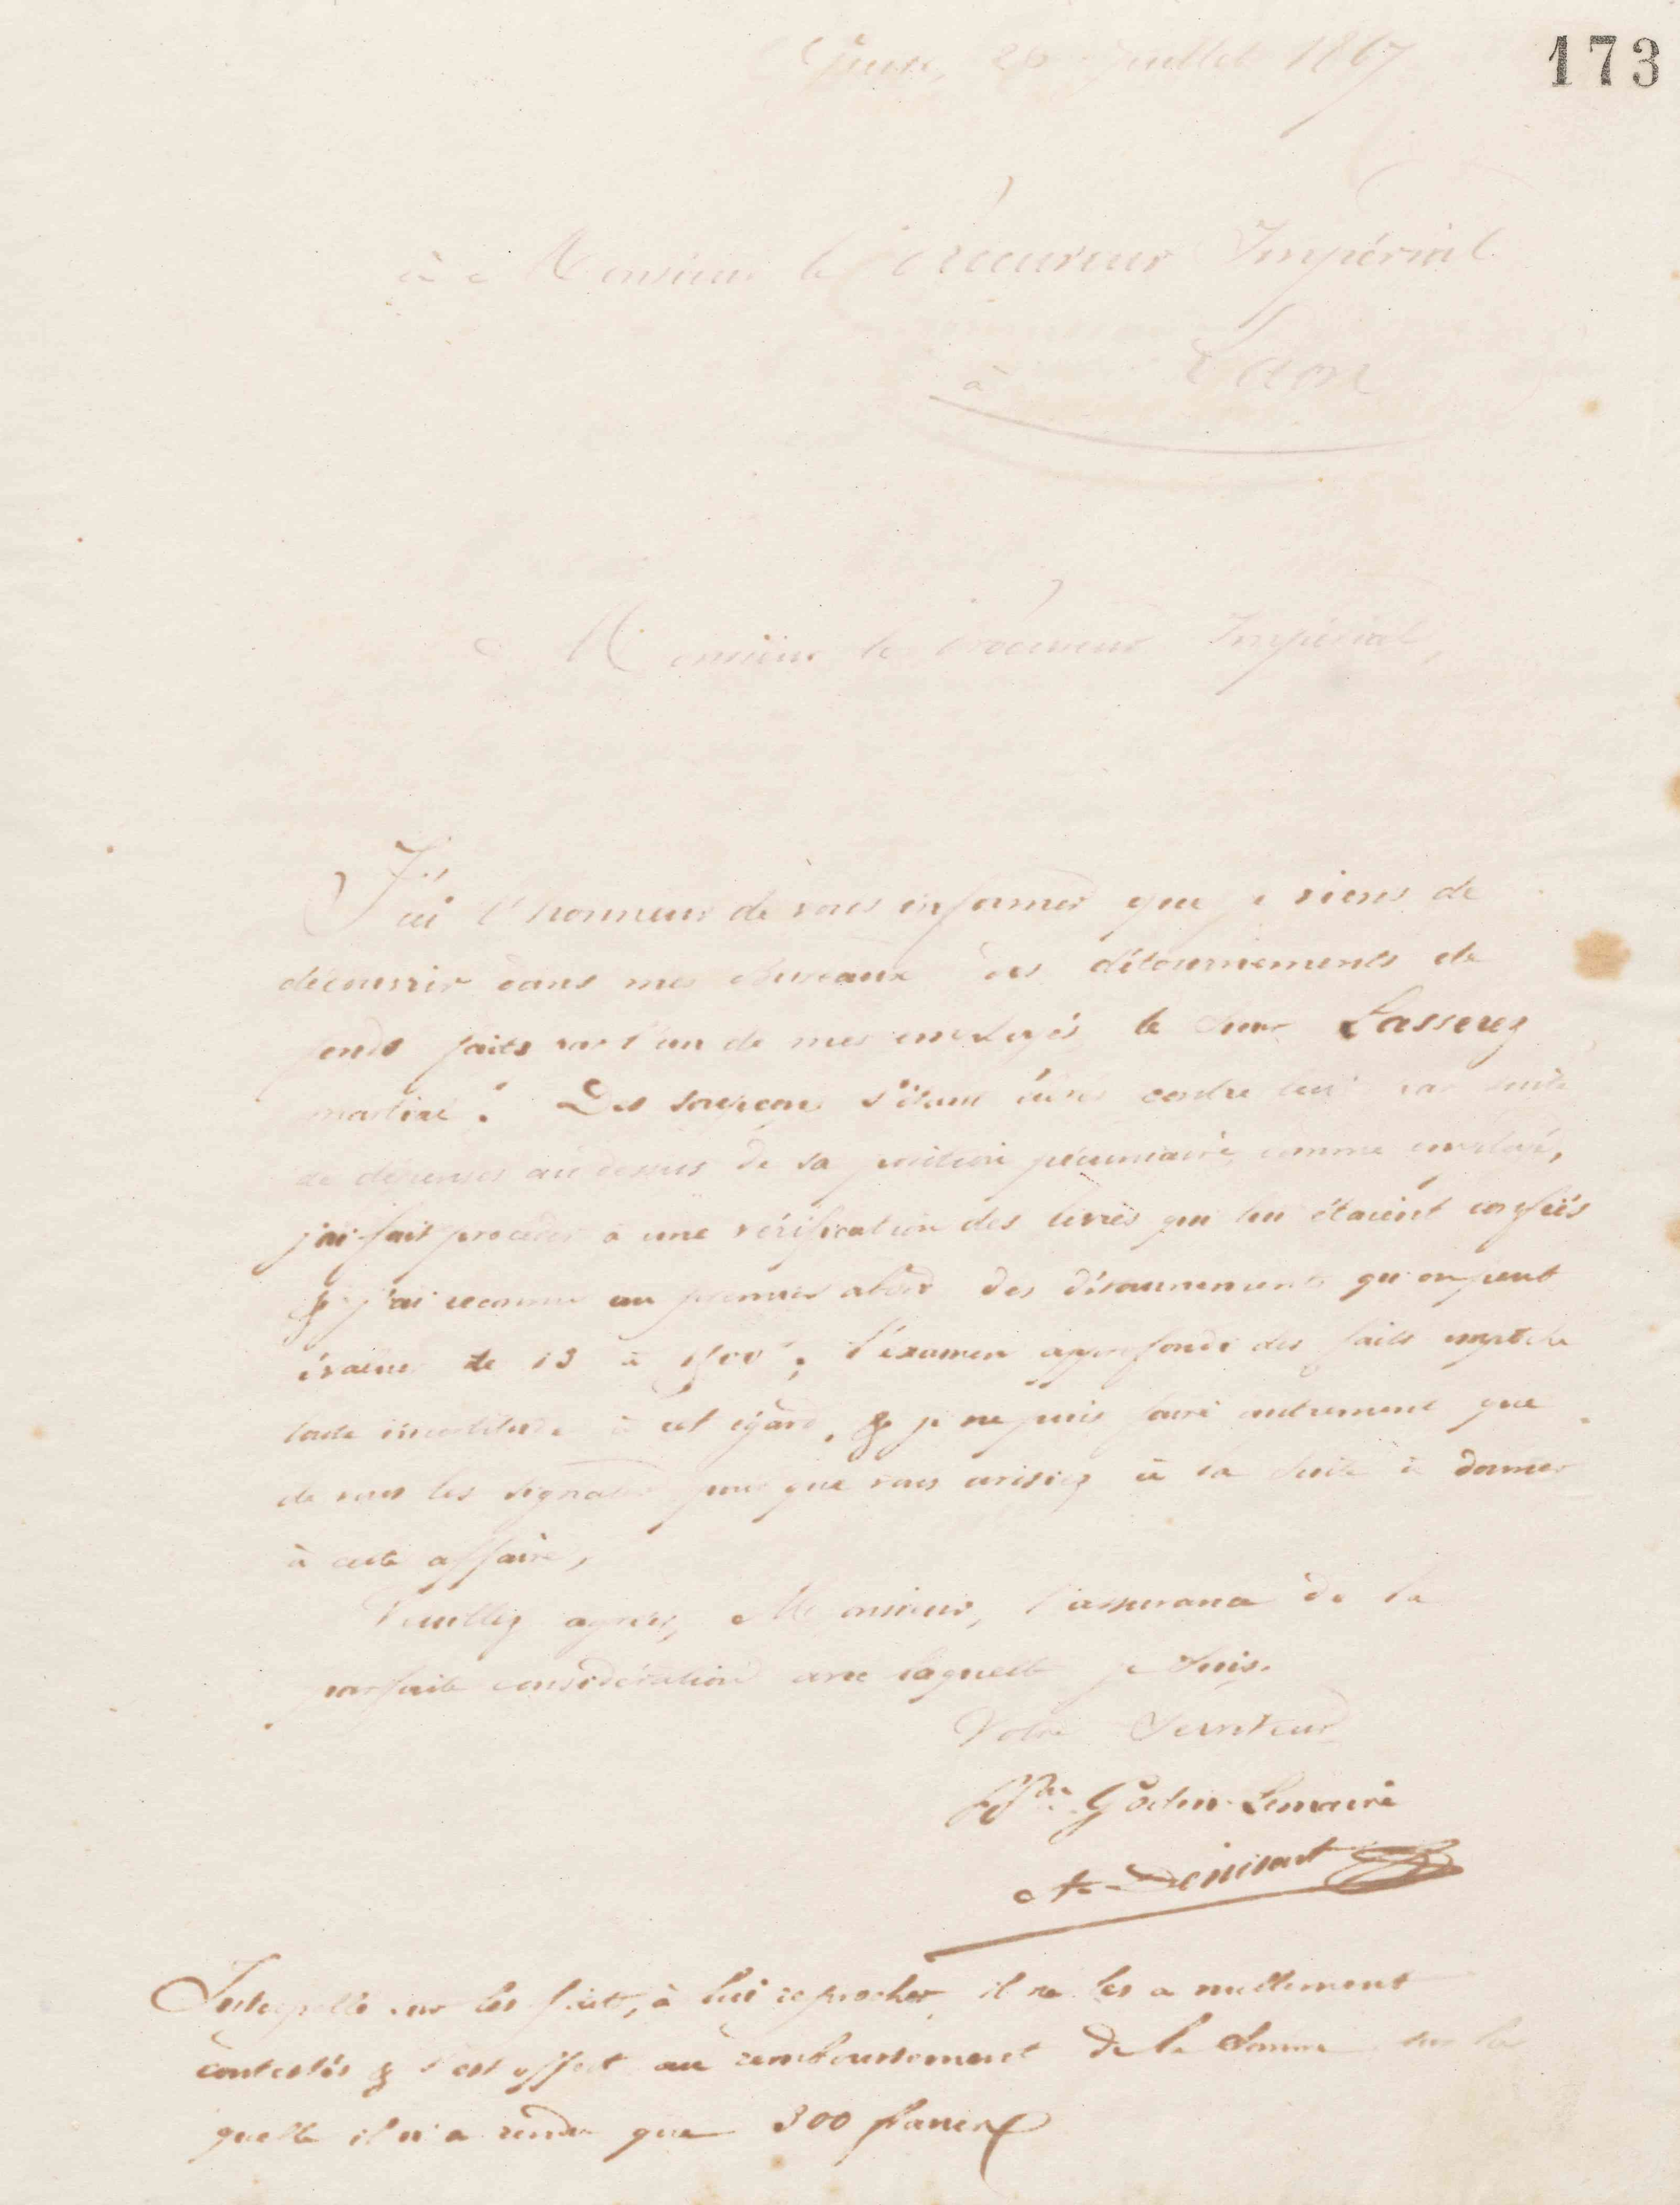 173
Guise, 28 Juillet 1867
à Monsieur le Procureur Impérial
à Laon
Monsieur le Procureur Impérial,
J'ai l'honneur de vous informer que je viens de
découvrir dans mes bureaux des détournements de
fonds faits par l'un de mes employés le sieur Lasserez
. Des soupçons s'étant élevés contre lui par suite
de dépenses au dessus de sa position pécuniaire comme employé,
j'ai fait procéder à une vérification des livres qui lui étaient confiés
& j'ai reconnu au premier abord des détournements qu'on peut
évaluer de 13 à 1500f; l'examen approfondi des faits
toute incertitude à cet égard, & je ne puis faire autrement que
de vous les signaler pour que vous avisiez à la suite à donner
à cette affaire,
Veuillez agréer, Monsieur, l'assurance de la
parfaite considération avec laquelle je suis.
Votre Serviteur
Godin-Lemaire
A. Denisart
Interpellé sur les faits, à lui reprocher, il ne les a nullement
contestés & s'est offert au remboursement de la somme sur la
quelle il n'a rendu que 300 francs